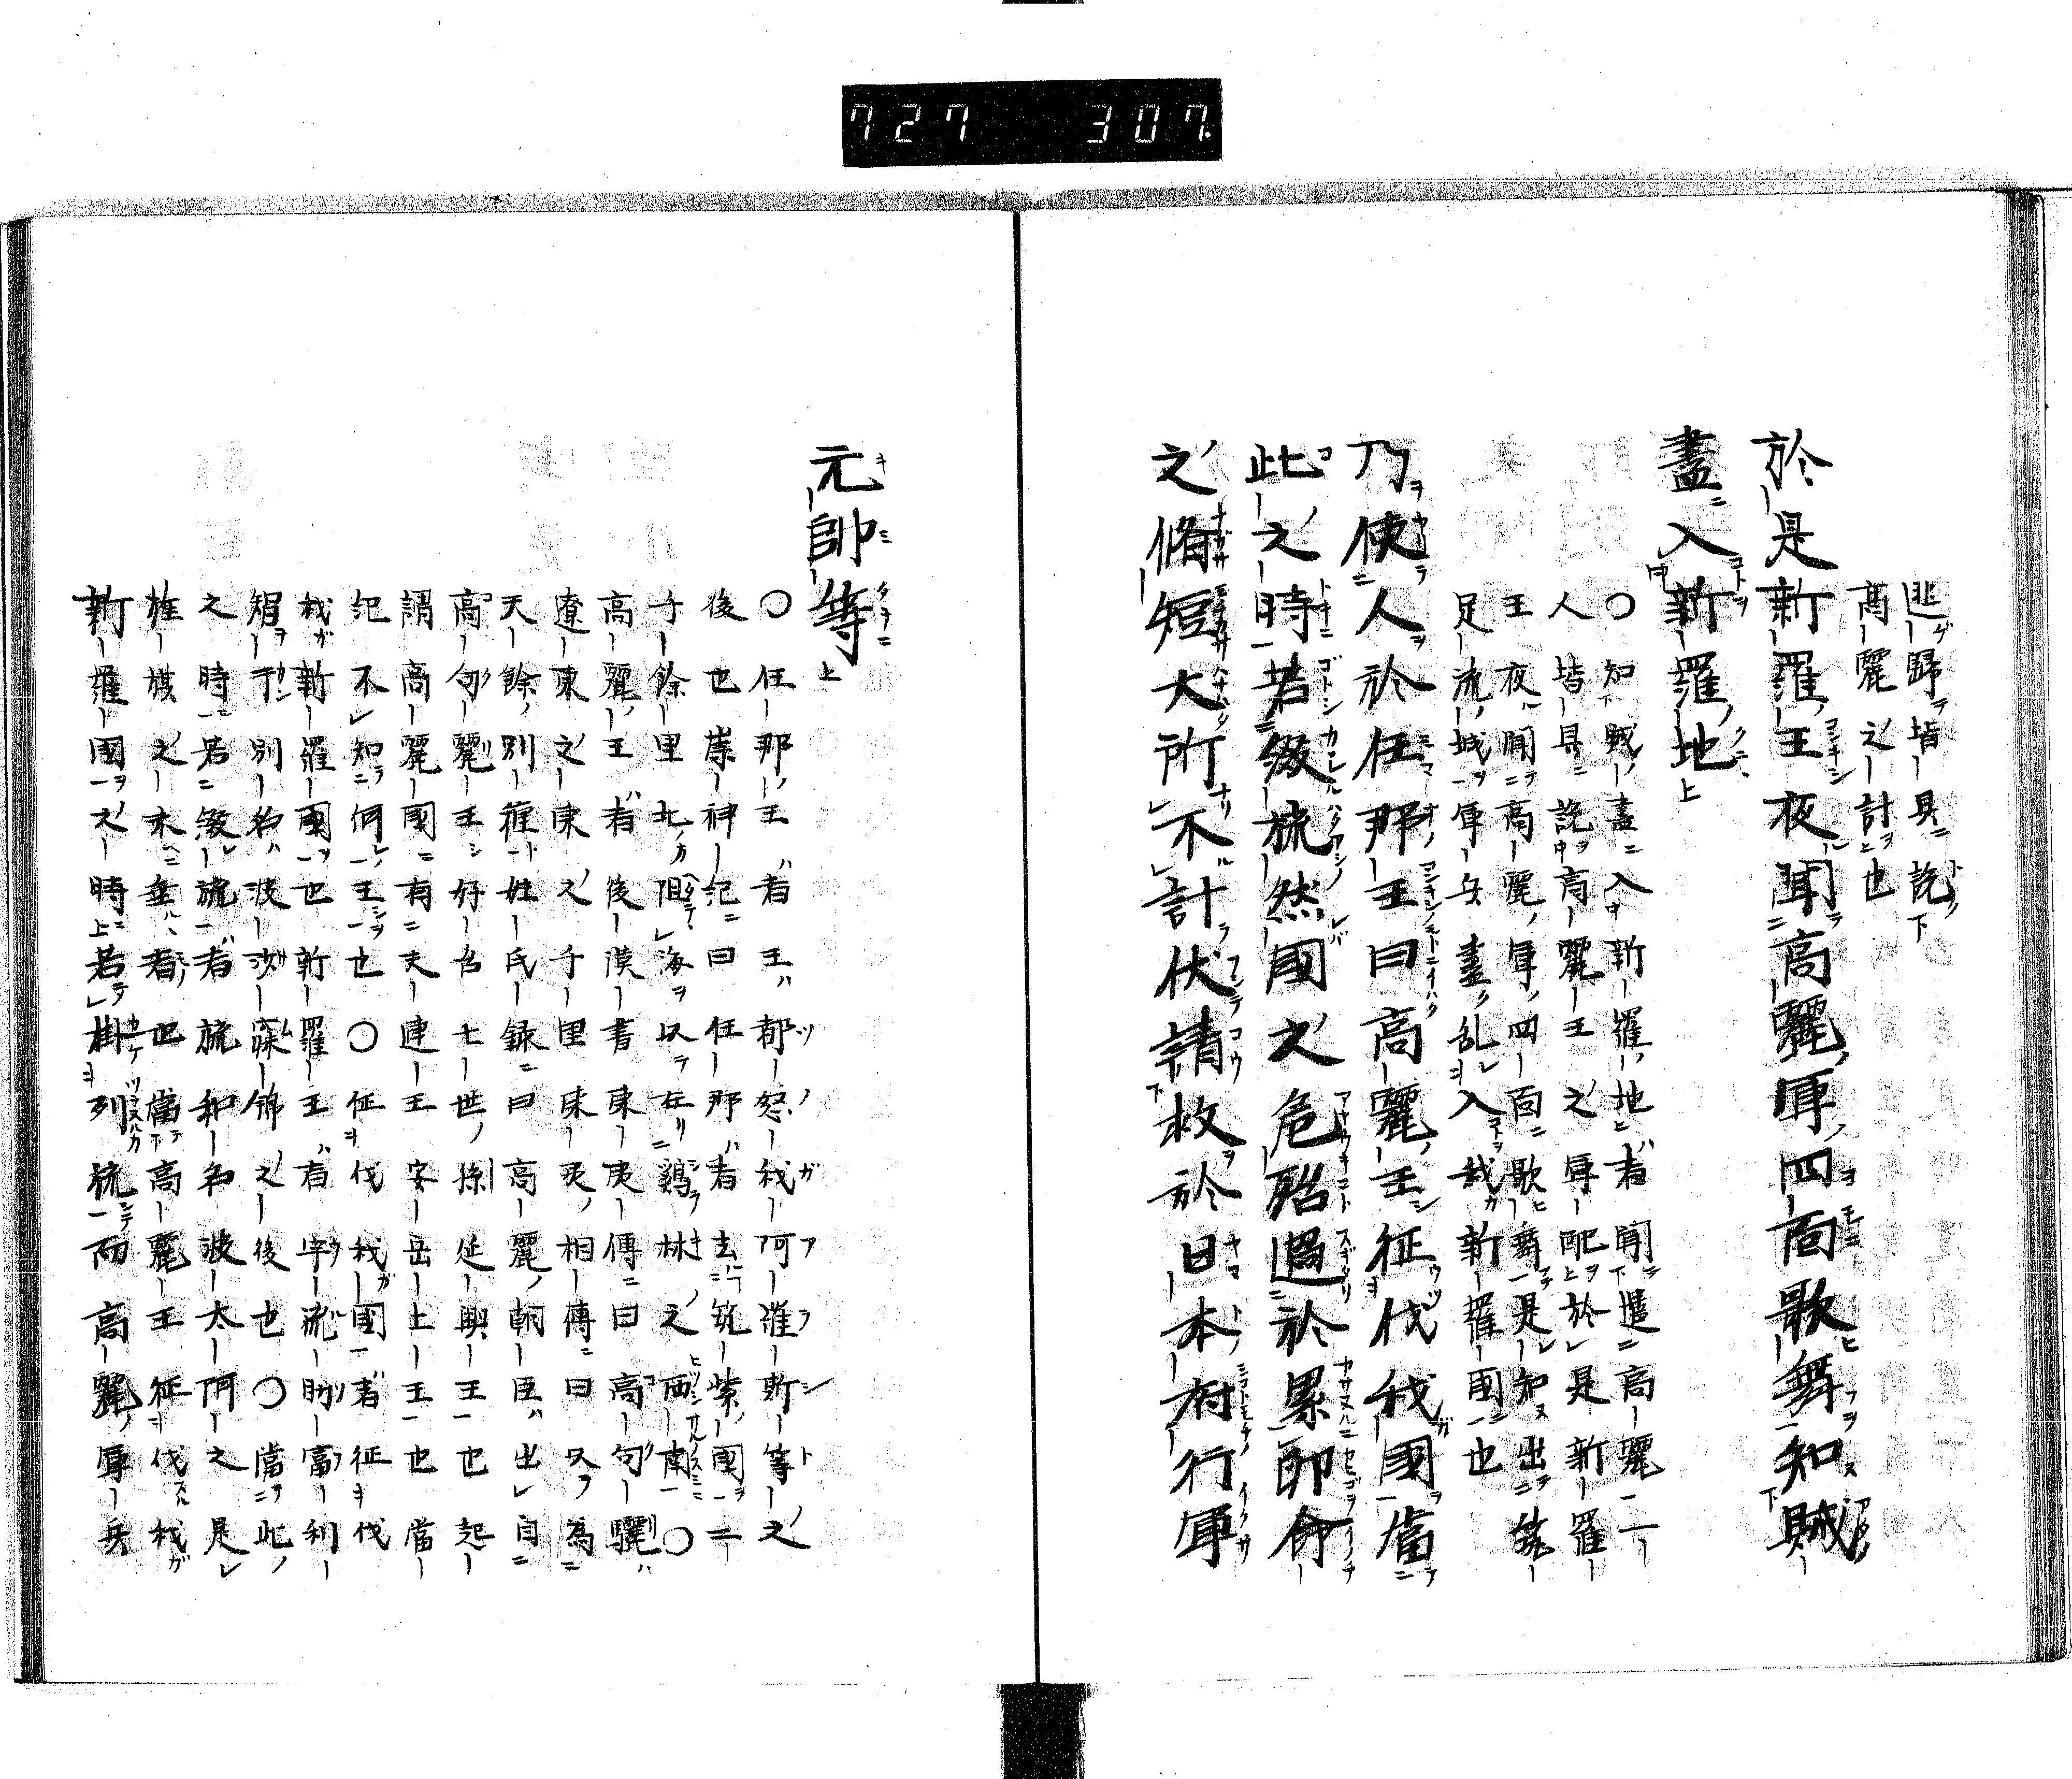 727 307.
逃歸皆具説
高麗之計也
於是新羅王夜聞高麗軍四面歌舞知賊
盡入新羅地
〇知賊盡入新羅地者聞遣高麗二
人皆具説高麗王之軍配於是新羅
王夜聞高麗軍四面歌舞是知出筑
足流城軍兵盡乱入我新羅國也
乃使人於任那王曰高麗王征伐我國當
此之時若綴旒然國之危殆過於累卵命
之脩短大所不計伏請救於日本府行軍
元帥等
〇任那王者王都怒我阿羅斯等之
後也崇神紀曰任那者去筑紫國二
千餘里北阻海以在鶏林之西南〇
高麗王者後漢書東夷傳曰高句驪
遼東之東千里東夷相傳曰以為
天餘別種姓氏録曰高麗朝臣出自
高句麗王好台七世孫延興王也起
謂高麗國有夫連王安岳上王也當
記不知何王也〇征伐我國者征伐
我新羅國也新羅王者宇流助富利
智干別名波沙寐錦之後也〇當此
之時若綴旒者旒和名波太阿之是
旌旗之末垂者也當高麗王征伐我
新羅國之時若掛列旒而高麗軍兵